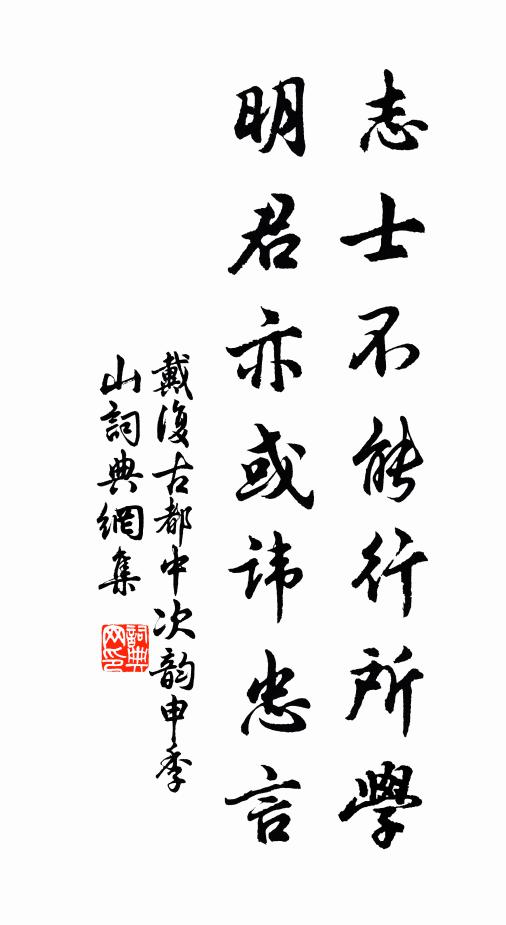 志士不能行所學
明君亦或諱忠言
戴復古都中次韵申季
山詞典網集
詞典
網印